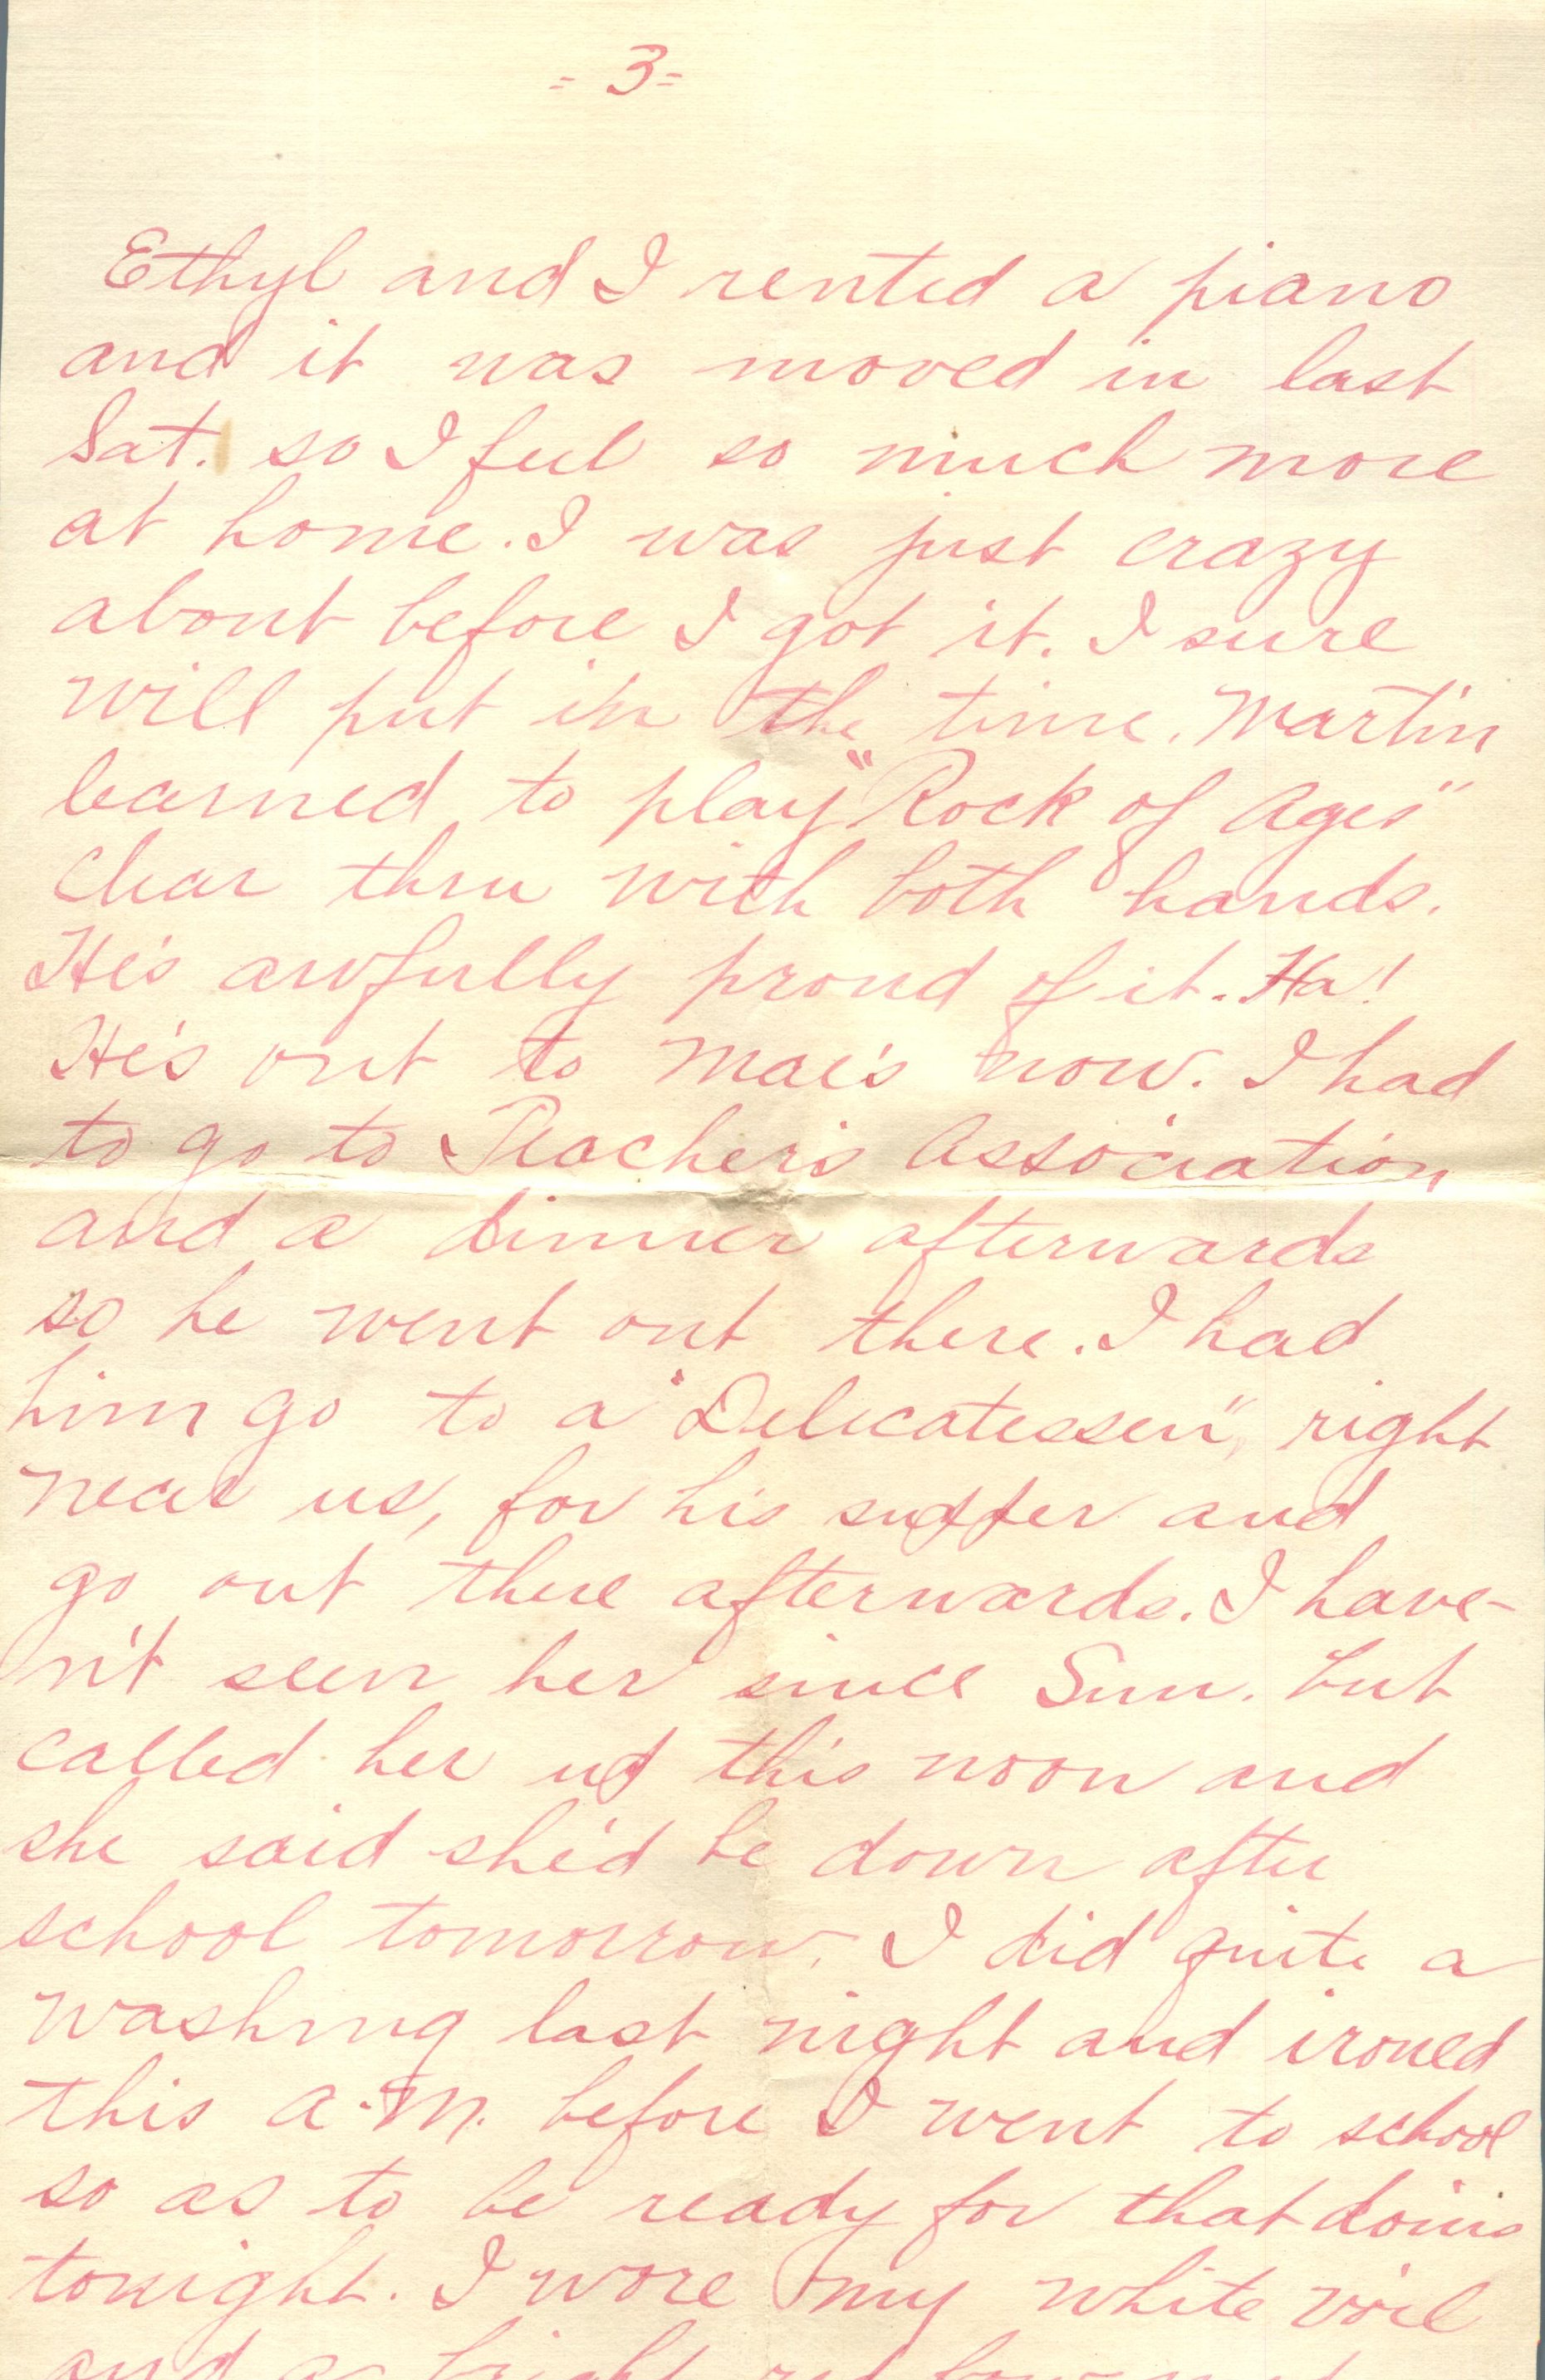 - 3 -
Ethyl and I rented a piano
and it was moved in last
Sat. so I feel so much more
at home. I was just crazy
about before I got it. I sure
will put in the time. Martin
learned to play "Rock of Ages"
clear thru with both hands.
He's awfully proud of it. Ha!
He's out to Mae's now. I had
to go to Teacher's Association
and a dinner afterwards
so he went out there. I had
him go to a "Delicatessen", right
near us, for his supper and
go out there afterwards. I have-
n't seen her since Sun. but
called her up this noon and
she said she'd be down after
school tomorrow. I did quite a
washing last night and ironed
this A.M. before I went to school
so as to be ready for that doins
tonight. I wore my white voil
and a bright red